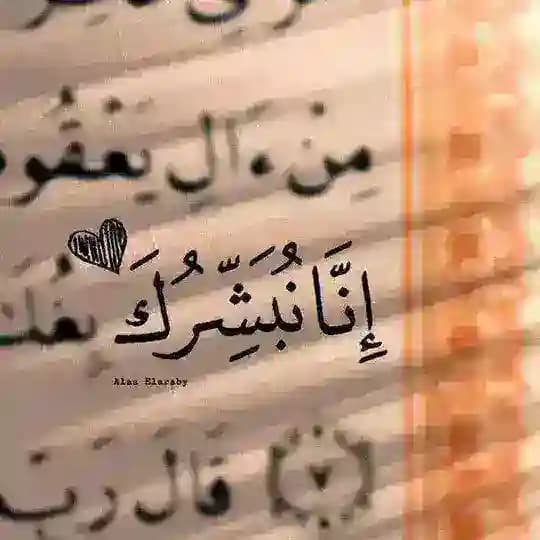 مِنْ ءَالِ يَعْقُو
إِنَّا نُبَشِّرُكَ بِغُلَ
Alaa Elaraby
٧ قَالَ رَبِّ